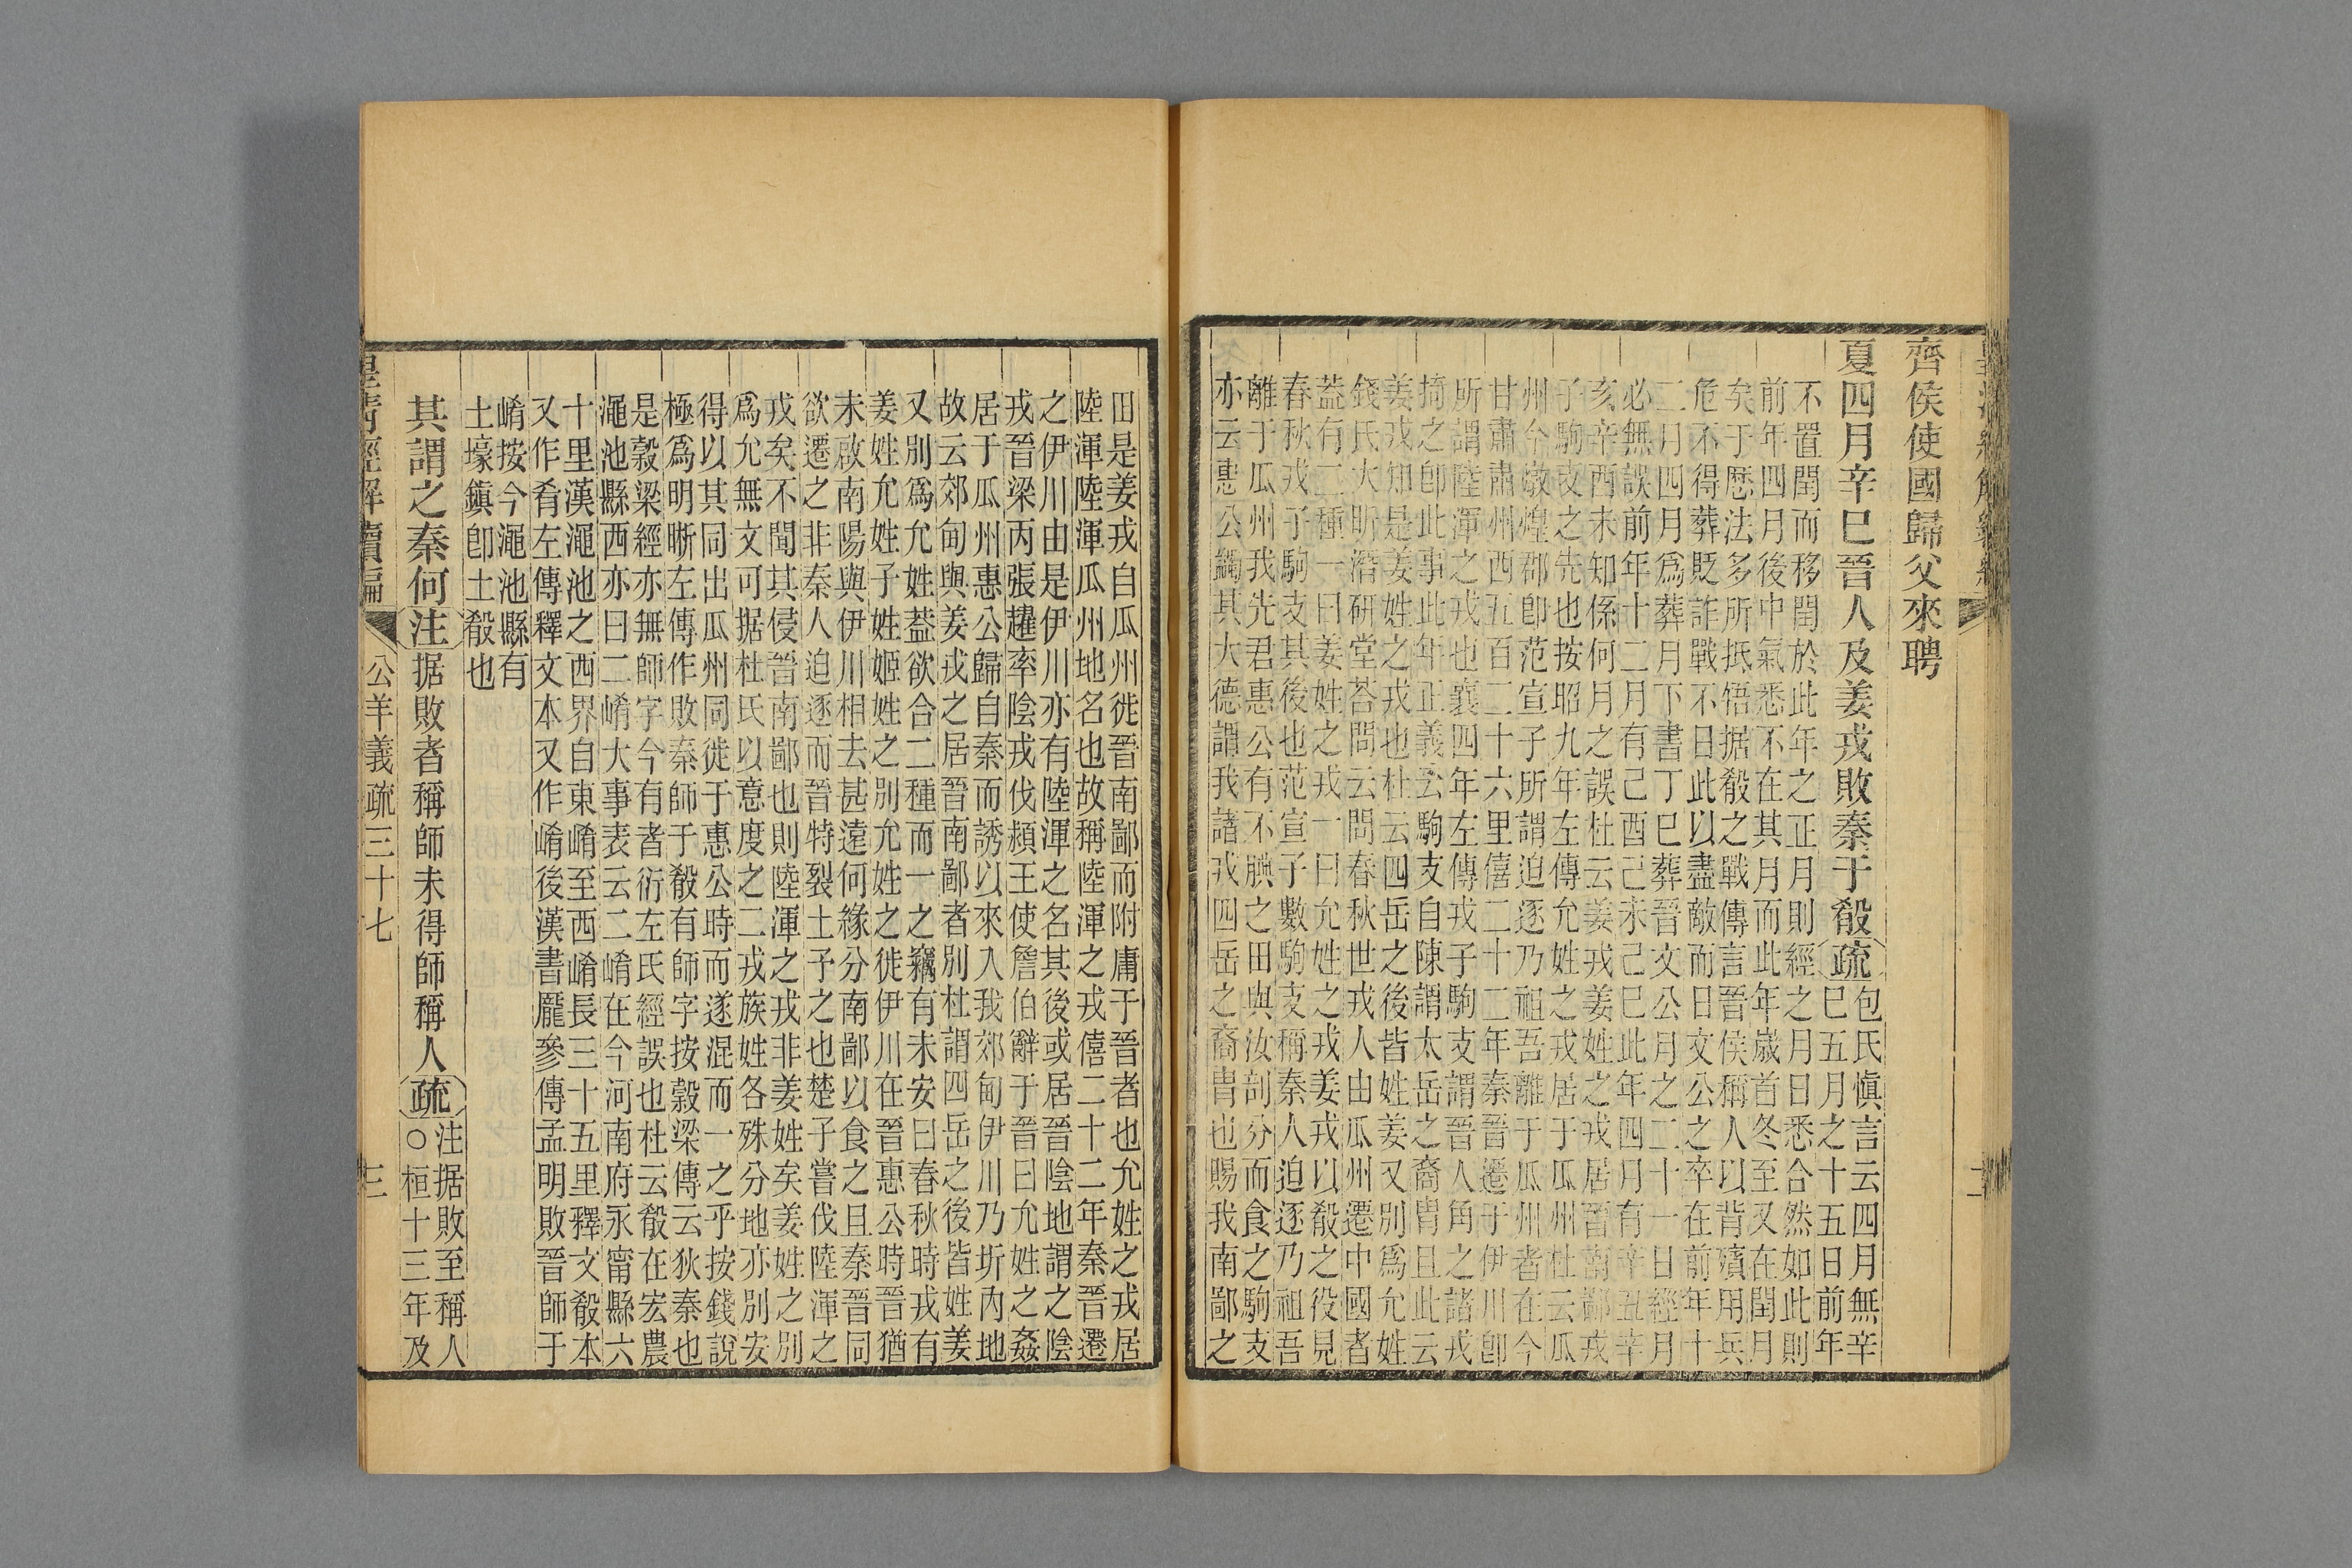 齊侯使國歸父來聘
夏四月辛巳晉人及姜戎敗秦于殽疏
包氏愼言云四月無辛
巳五月之十五日前年
不置閏而移閏於此年之正月則經之月日悉合然如此則
前年四月後中氣悉不在其月而此年歲首冬至又在閏月
矣于厯法多所抵悟据殽之戰傳言晉侯稱人以背殯用兵
危不得葬貶詐戰不日此以盡敵而日文公之卒在前年十
二月四月爲葬月下書丁巳葬晉文公月之二十一日經月
必無誤前年十二月有己酉己未己巳此年四月有辛丑辛
亥辛酉未知係何月之誤杜云姜戎姜姓之戎居晉南鄙戎
子駒支之先也按昭九年左傳允姓之戎居于瓜州杜云瓜
州今燉煌郡卽范宣子所謂迫逐乃祖吾離于瓜州者在今
甘肅肅州西五百二十六里僖二十二年秦晉遷于伊川卽
所謂陸渾之戎也襄四年左傳戎子駒支謂晉人角之諸戎
掎之卽此事此年正義云駒支自陳謂太岳之裔冑且此云
姜戎知是姜姓之戎也杜云四岳之後皆姓姜又別爲允姓
錢氏大昕潛研堂荅問云問春秋世戎人由瓜州遷中國者
葢有二種一曰姜姓之戎一曰允姓之戎姜戎以殽之役見
春秋戎子駒支其後也范宣子數駒支稱秦人迫逐乃祖吾
離于瓜州我先君惠公有不腆之田與汝剖分而食之駒支
亦云惠公蠲其大德謂我諸戎四岳之裔冑也賜我南鄙之
田是姜戎自瓜州徙晉南鄙而附庸于晉者也允姓之戎居
陸渾陸渾瓜州地名也故稱陸渾之戎僖二十二年秦晉遷
之伊川由是伊川亦有陸渾之名其後或居晉陰地謂之陰
戎晉梁丙張趯率陰戎伐潁王使詹伯辭于晉曰允姓之姦
居于瓜州惠公歸自秦而誘以來入我郊甸伊川乃圻內地
故云郊甸與姜戎之居晉南鄙者別杜謂四岳之後皆姓姜
又別爲允姓葢欲合二種而一之竊有未安曰春秋時戎有
姜姓允姓子姓姬姓之別允姓之徙伊川在晉惠公時晉猶
未啟南陽與伊川相去甚遠何緣分南鄙以食之且秦晉同
欲遷之非秦人迫逐而晉特裂土予之也楚子嘗伐陸渾之
戎矣不聞其侵晉南鄙也則陸渾之戎非姜姓矣姜姓之別
爲允無文可据杜氏以意度之二戎族姓各殊分地亦別安
得以其同出瓜州同徙于惠公時而遂混而一之乎按錢說
極爲明晰左傳作敗秦師于殽有師字按穀梁傳云狄秦也
是穀梁經亦無師字今有者衍左氏經誤也杜云殽在宏農
澠池縣西亦曰二崤大事表云二崤在今河南府永甯縣六
十里漢澠池之西界自東崤至西崤長三十五里釋文殽本
又作肴左傳釋文本又作崤後漢書龐參傳孟明敗晉師于
崤按今澠池縣有
土壕鎮卽土殽也
其謂之秦何注据敗者稱師未得師稱人疏
注据敗至稱人
○桓十三年及
皇清經解續編 公羊義疏三十七 三